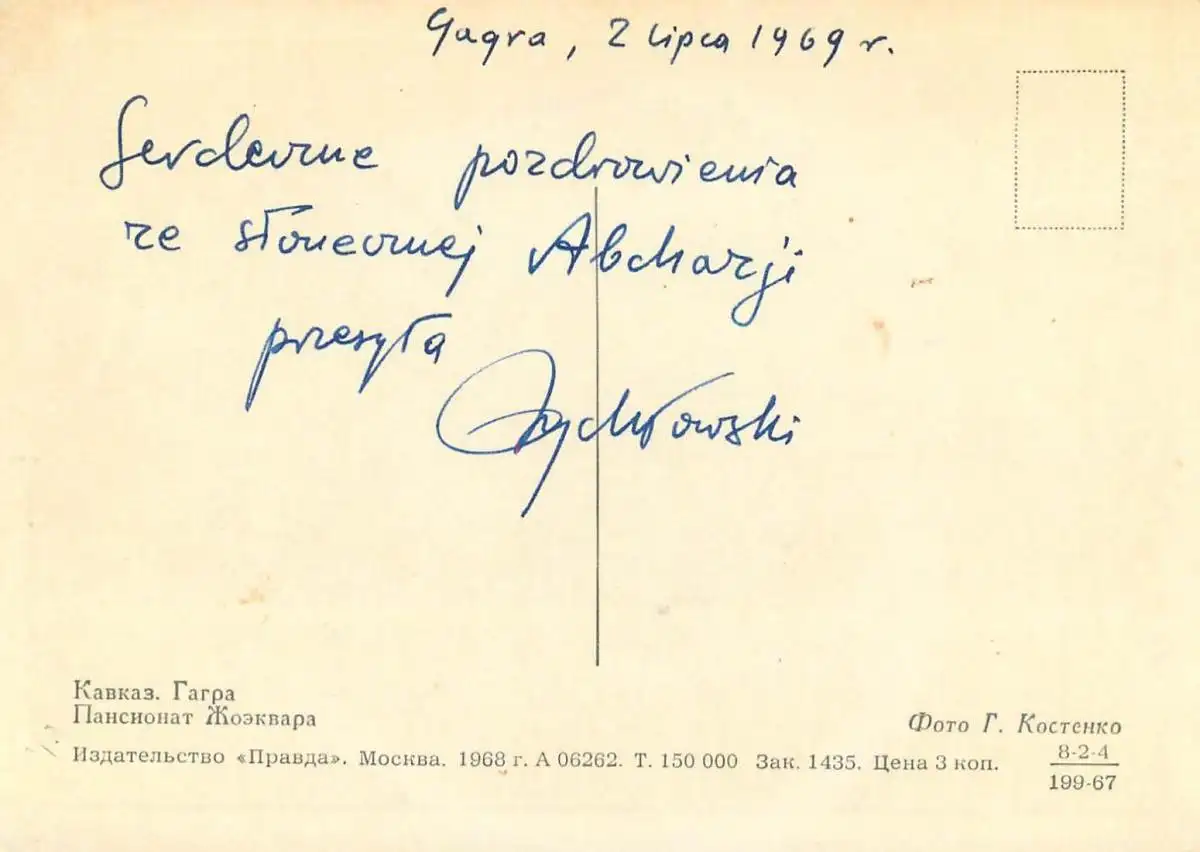 Gagra, 2 lipca 1969 r.
Serdeczne pozdrowienia
ze słonecznej Abchazji
przesyła
Rychłowski
Кавказ. Гагра
Пансионат Жоэквара
Фото Г. Костенко
Издательство «Правда». Москва. 1968 г. А 06262. Т. 150 000 Зак. 1435. Цена 3 коп.
8-2-4
199-67